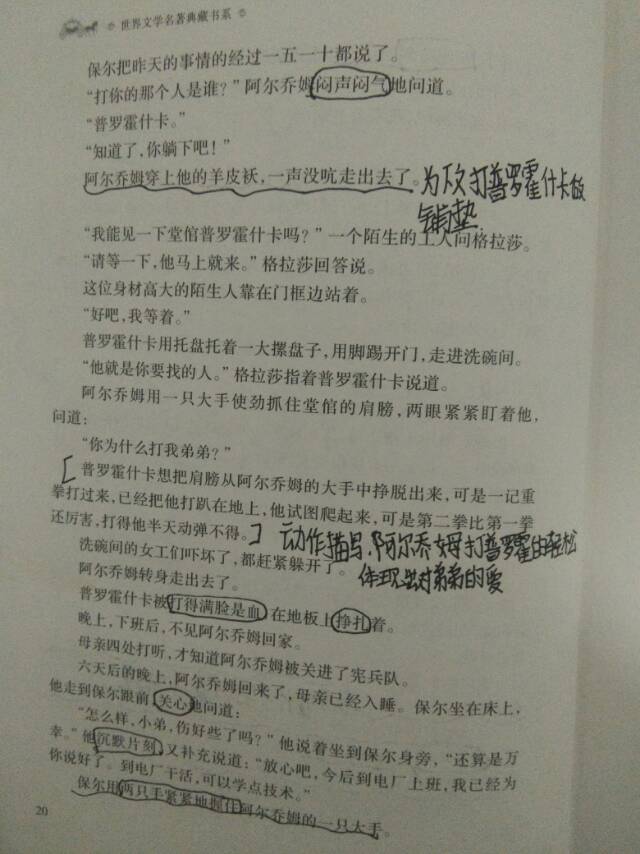 世界文学名著典藏书系
保尔把昨天的事情的经过一五一十都说了。
“打你的那个人是谁？”阿尔乔姆闷声闷气地问道。
“普罗霍什卡。”
“知道了，你躺下吧！”
阿尔乔姆穿上他的羊皮袄，一声没吭走出去了。为下文打普罗霍什卡做
铺垫.
“我能见一下堂倌普罗霍什卡吗？”一个陌生的工人问格拉莎。
“请等一下，他马上就来。”格拉莎回答说。
这位身材高大的陌生人靠在门框边站着。
“好吧，我等着。”
普罗霍什卡用托盘托着一大摞盘子，用脚踢开门，走进洗碗间。
“他就是你要找的人。”格拉莎指着普罗霍什卡说道。
阿尔乔姆用一只大手使劲抓住堂倌的肩膀，两眼紧紧盯着他，
问道：
“你为什么打我弟弟？”
普罗霍什卡想把肩膀从阿尔乔姆的大手中挣脱出来，可是一记重
拳打过来，已经把他打趴在地上，他试图爬起来，可是第二拳比第一拳
还厉害，打得他半天动弹不得。动作描写，阿尔乔姆打普罗霍的轻松
体现出对弟弟的爱
洗碗间的女工们吓坏了，都赶紧躲开了。
阿尔乔姆转身走出去了。
普罗霍什卡被打得满脸是血，在地板上挣扎着。
晚上，下班后，不见阿尔乔姆回家。
母亲四处打听，才知道阿尔乔姆被关进了宪兵队。
六天后的晚上，阿尔乔姆回来了，母亲已经入睡。保尔坐在床上，
他走到保尔跟前，关心地问道：
“怎么样，小弟，伤好些了吗？”他说着坐到保尔身旁，“还算是万
幸。”他沉默片刻，又补充说道：“放心吧，今后到电厂上班，我已经为
你说好了。到电厂干活，可以学点技术。”
保尔用两只手紧紧地握住阿尔乔姆的一只大手。
20